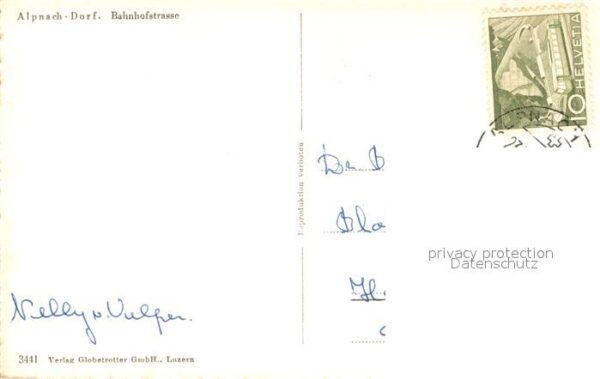 Alpnach-Dorf. Bahnhofstrasse
10 HELVETIA
Reproduktion verboten
privacy protection
Datenschutz
Nelly v. Vulper.
3441 Verlag Globetrotter GmbH., Luzern